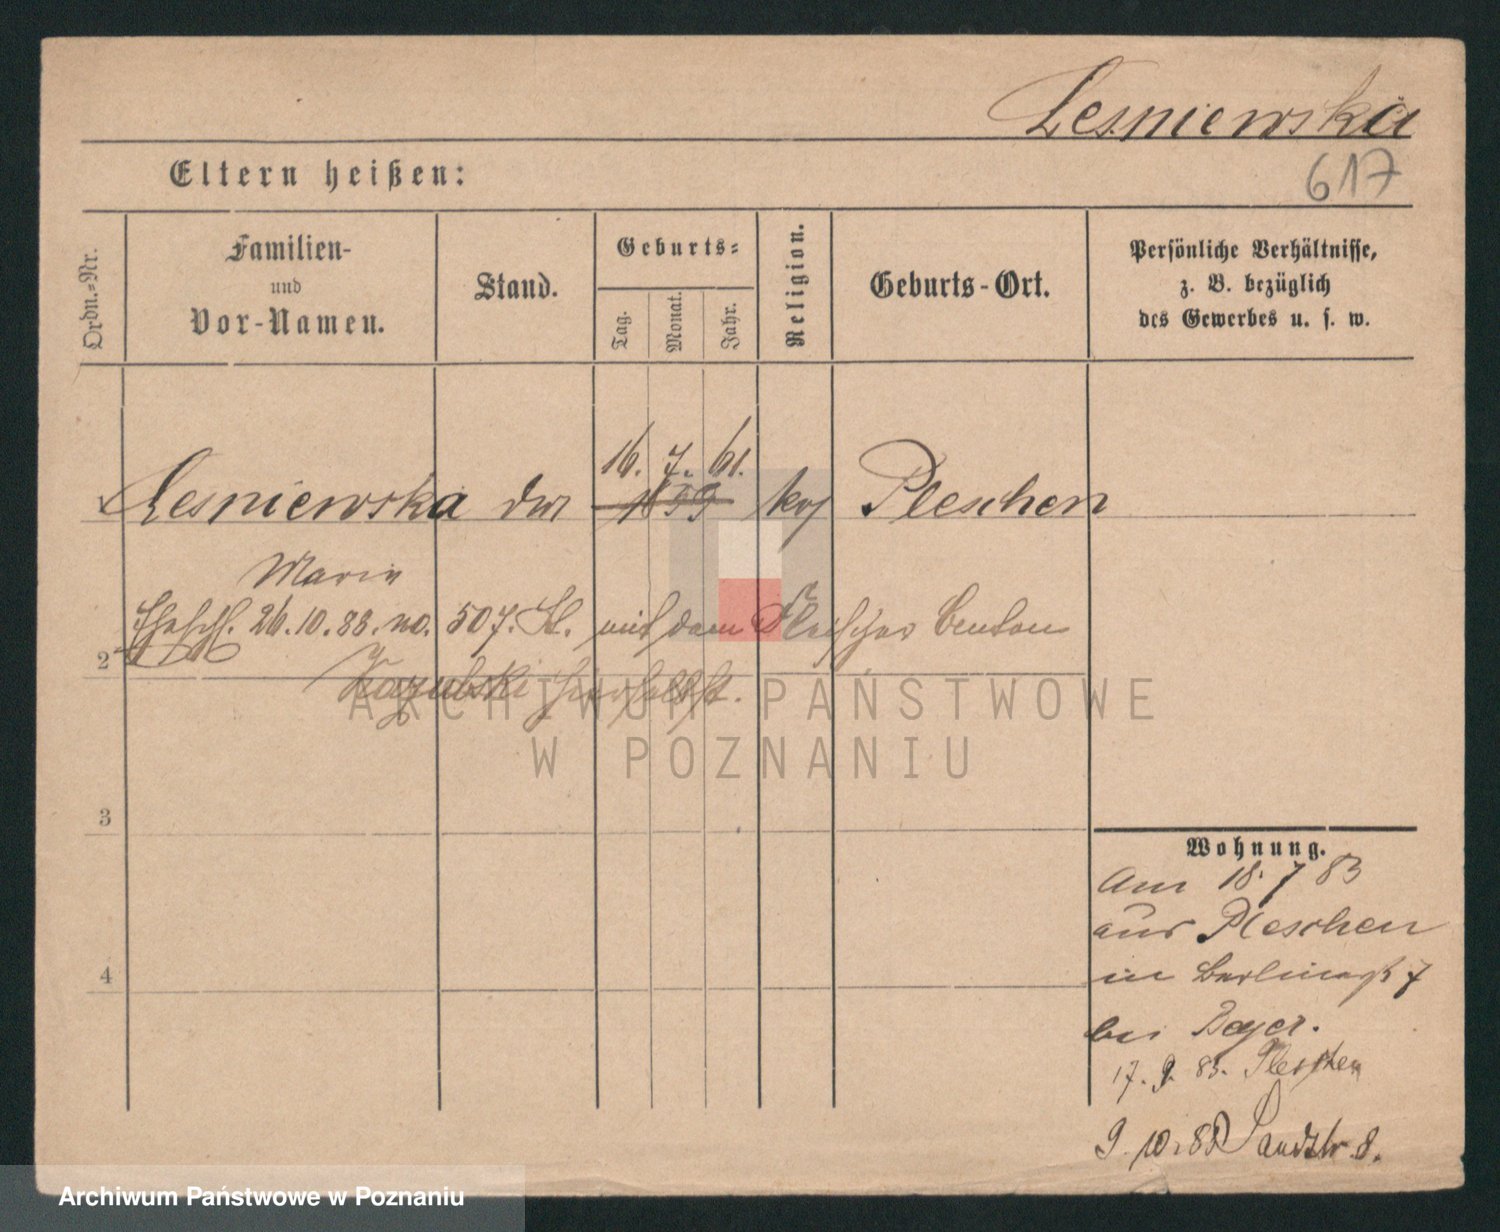 Lesniewska
617
Eltern heißen:
Ordn.-Nr.
Familien-
und
Vor-Namen.
Stand.
Geburts-
Tag.
Monat.
Jahr.
Religion.
Geburts-Ort.
Persönliche Verhältnisse,
z. B. bezüglich
des Gewerbes u. s. w.
16. 7. 61.
1 Lesniewska 1859 Pleschen
Maria
Eheschl. 26.10.88. no. 507. St. mit dem Fleischer
2
hierselbst.
ARCHIWUM PAŃSTWOWE
W POZNANIU
3
Wohnung.
Am 18. 7 83
aus Pleschen
in Berlinerstr 7
bei Beyer.
4
17. 9. 83. Pleschen
9. 10. 85 Sandstr. 8.
Archiwum Państwowe w Poznaniu